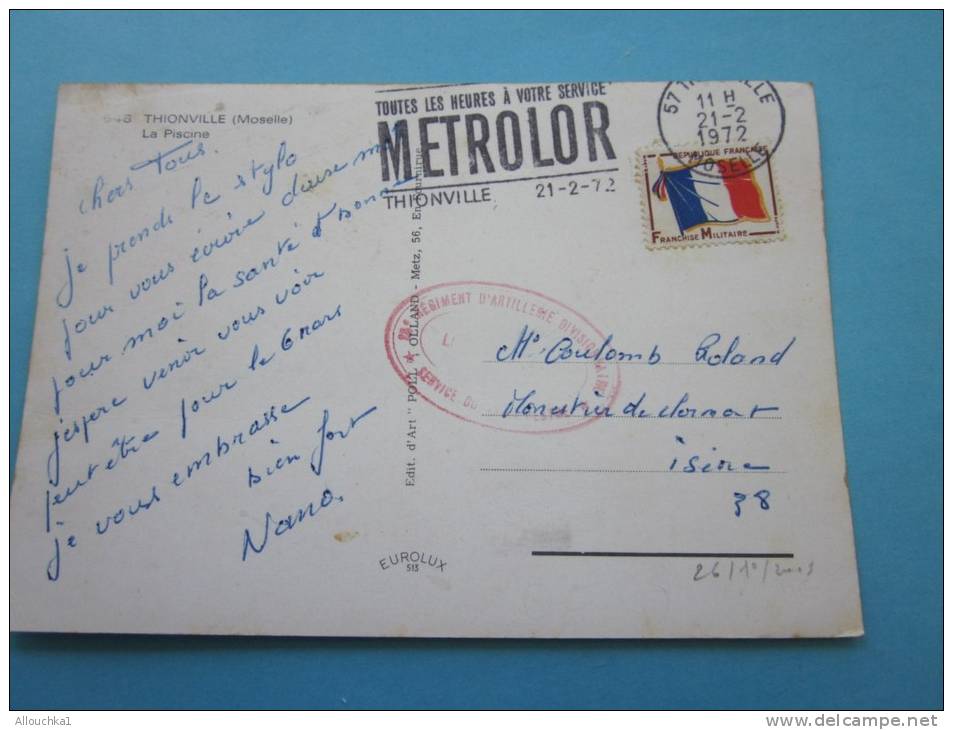 948 THIONVILLE (Moselle)
La Piscine
chers Tous.
je prends le stylo
pour vous écrire deux mots
pour moi la santé est bonne
j'espere venir vous voir
peut être pour le 6 mars
je vous embrasse
bien fort
Nano.
TOUTES LES HEURES À VOTRE SERVICE
METROLOR
THIONVILLE 21-2-72
57 THIONVILLE
11 H
21-2
1972
MOSELLE
REPUBLIQUE FRANÇAISE
FRANCHISE MILITAIRE
RÉGIMENT D'ARTILLERIE DIVISIONNAIRE
SERVICE DU
Edit. d'Art " POLL " OLLAND - Metz, 56, En Fournirue
Mr Coulomb Roland
Monestier de Clermont
isère
38
EUROLUX
513
26/10/2009
Allouchka1
http://www.delcampe.net